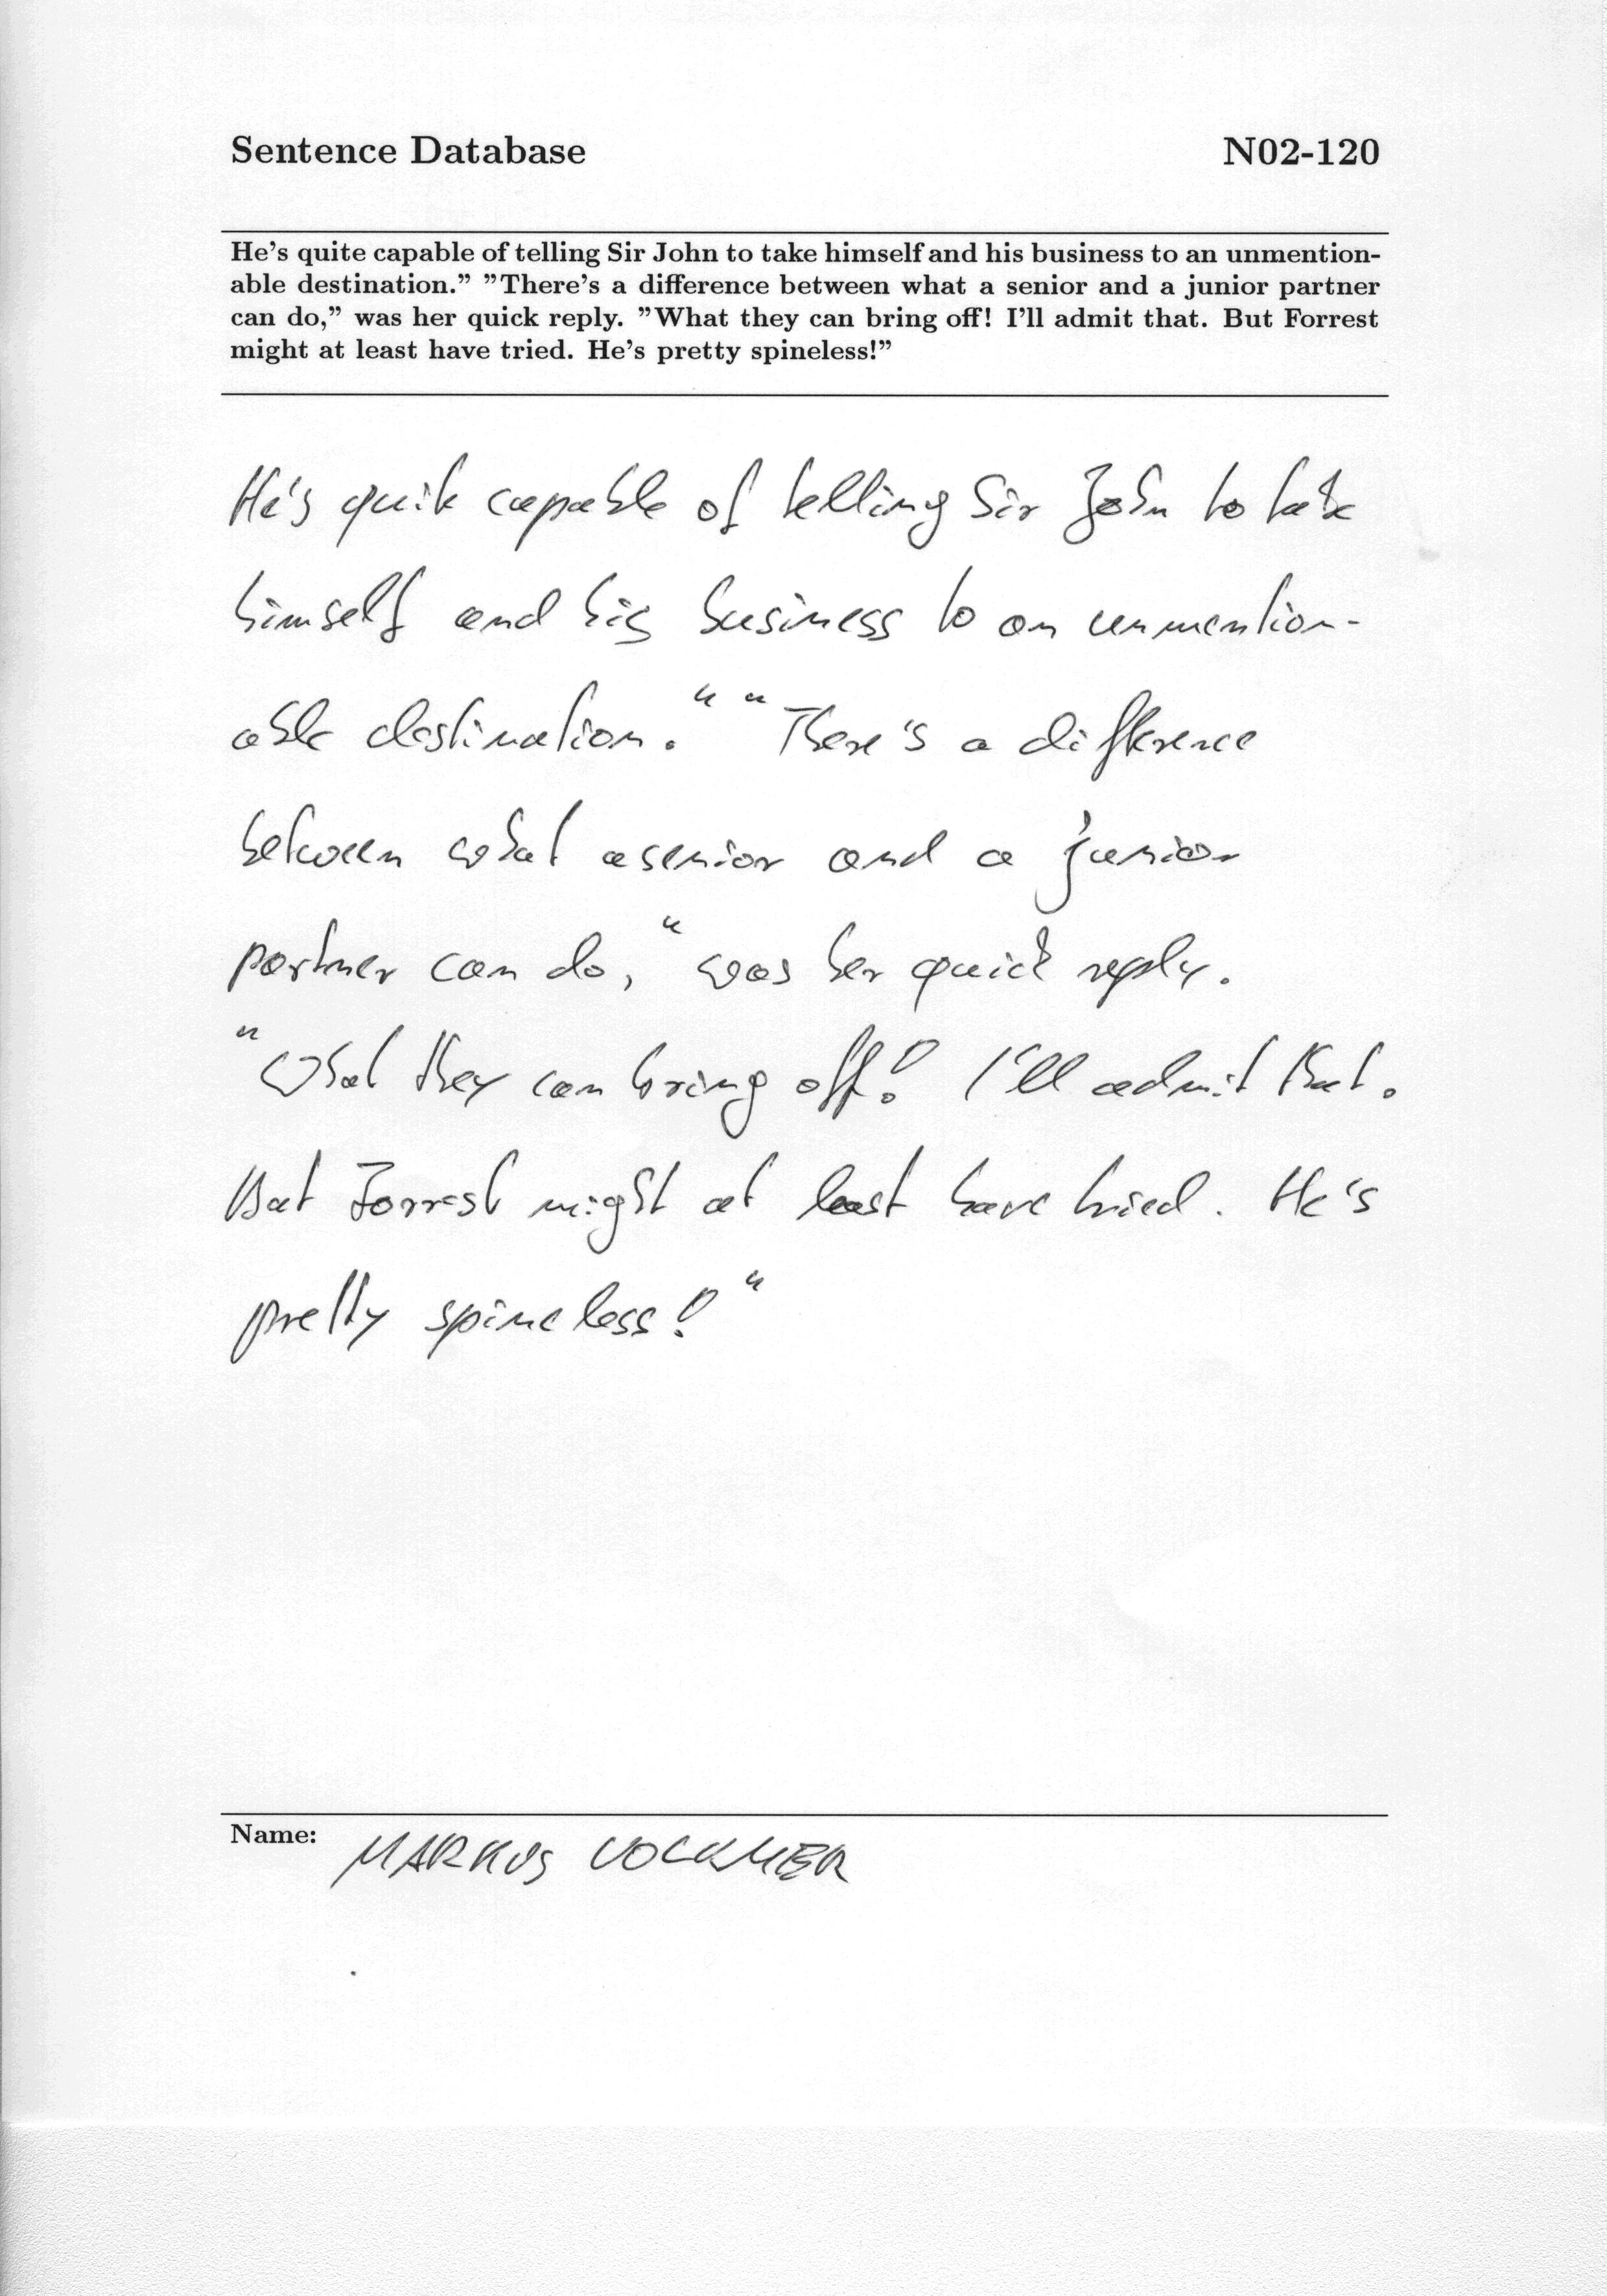 Sentence Database N02-120
He's quite capable of telling Sir John to take himself and his business to an unmention-
able destination.” ”There's a difference between what a senior and a junior partner
can do,” was her quick reply. ”What they can bring off! I'll admit that. But Forrest
might at least have tried. He's pretty spineless!”
He's quite capable of telling Sir John to take
himself and his business to an unmention-
able destination." "There's a difference
between what a senior and a junior
partner can do," was her quick reply.
"What they can bring off! I'll admit that.
But Forrest might at least have tried. He's
pretty spineless!"
Name: MARKUS VOCKMER